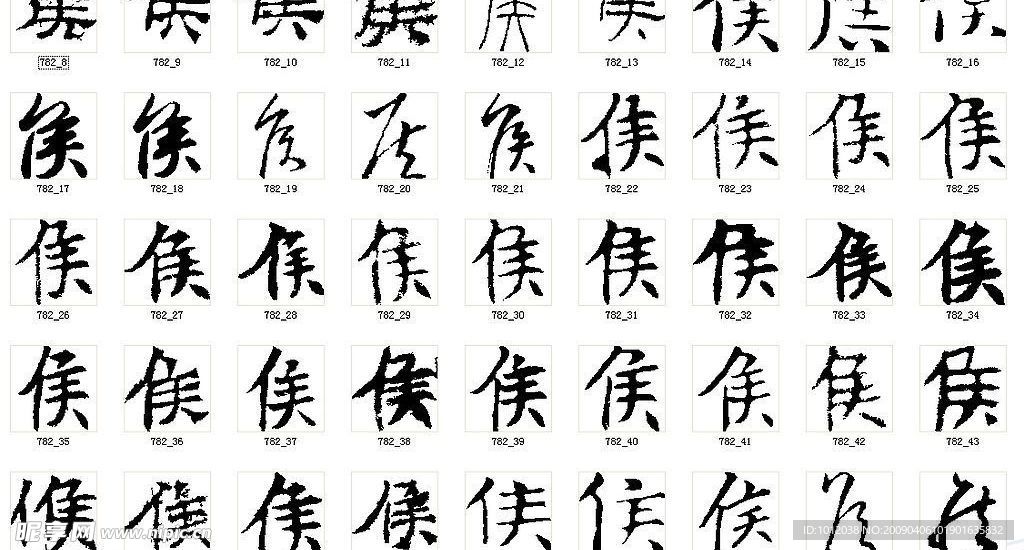 782_8 782_9 782_10 782_11 782_12 782_13 782_14 782_15 782_16
侯 侯 侯 侯 侯 侯 侯 侯 侯
782_17 782_18 782_19 782_20 782_21 782_22 782_23 782_24 782_25
侯 侯 侯 侯 侯 侯 侯 侯 侯
782_26 782_27 782_28 782_29 782_30 782_31 782_32 782_33 782_34
侯 侯 侯 侯 侯 侯 侯 侯 侯
782_35 782_36 782_37 782_38 782_39 782_40 782_41 782_42 782_43
侯 侯 侯 侯 侯 侯 侯 侯 侯
昵享网 www.nipic.com
ID:1012038 NO:20090406101901635832